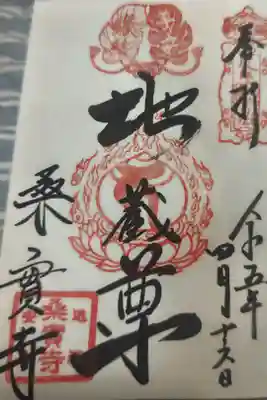 奉拝
令和五年
四月十六日
地蔵尊
桒實寺
桑實寺